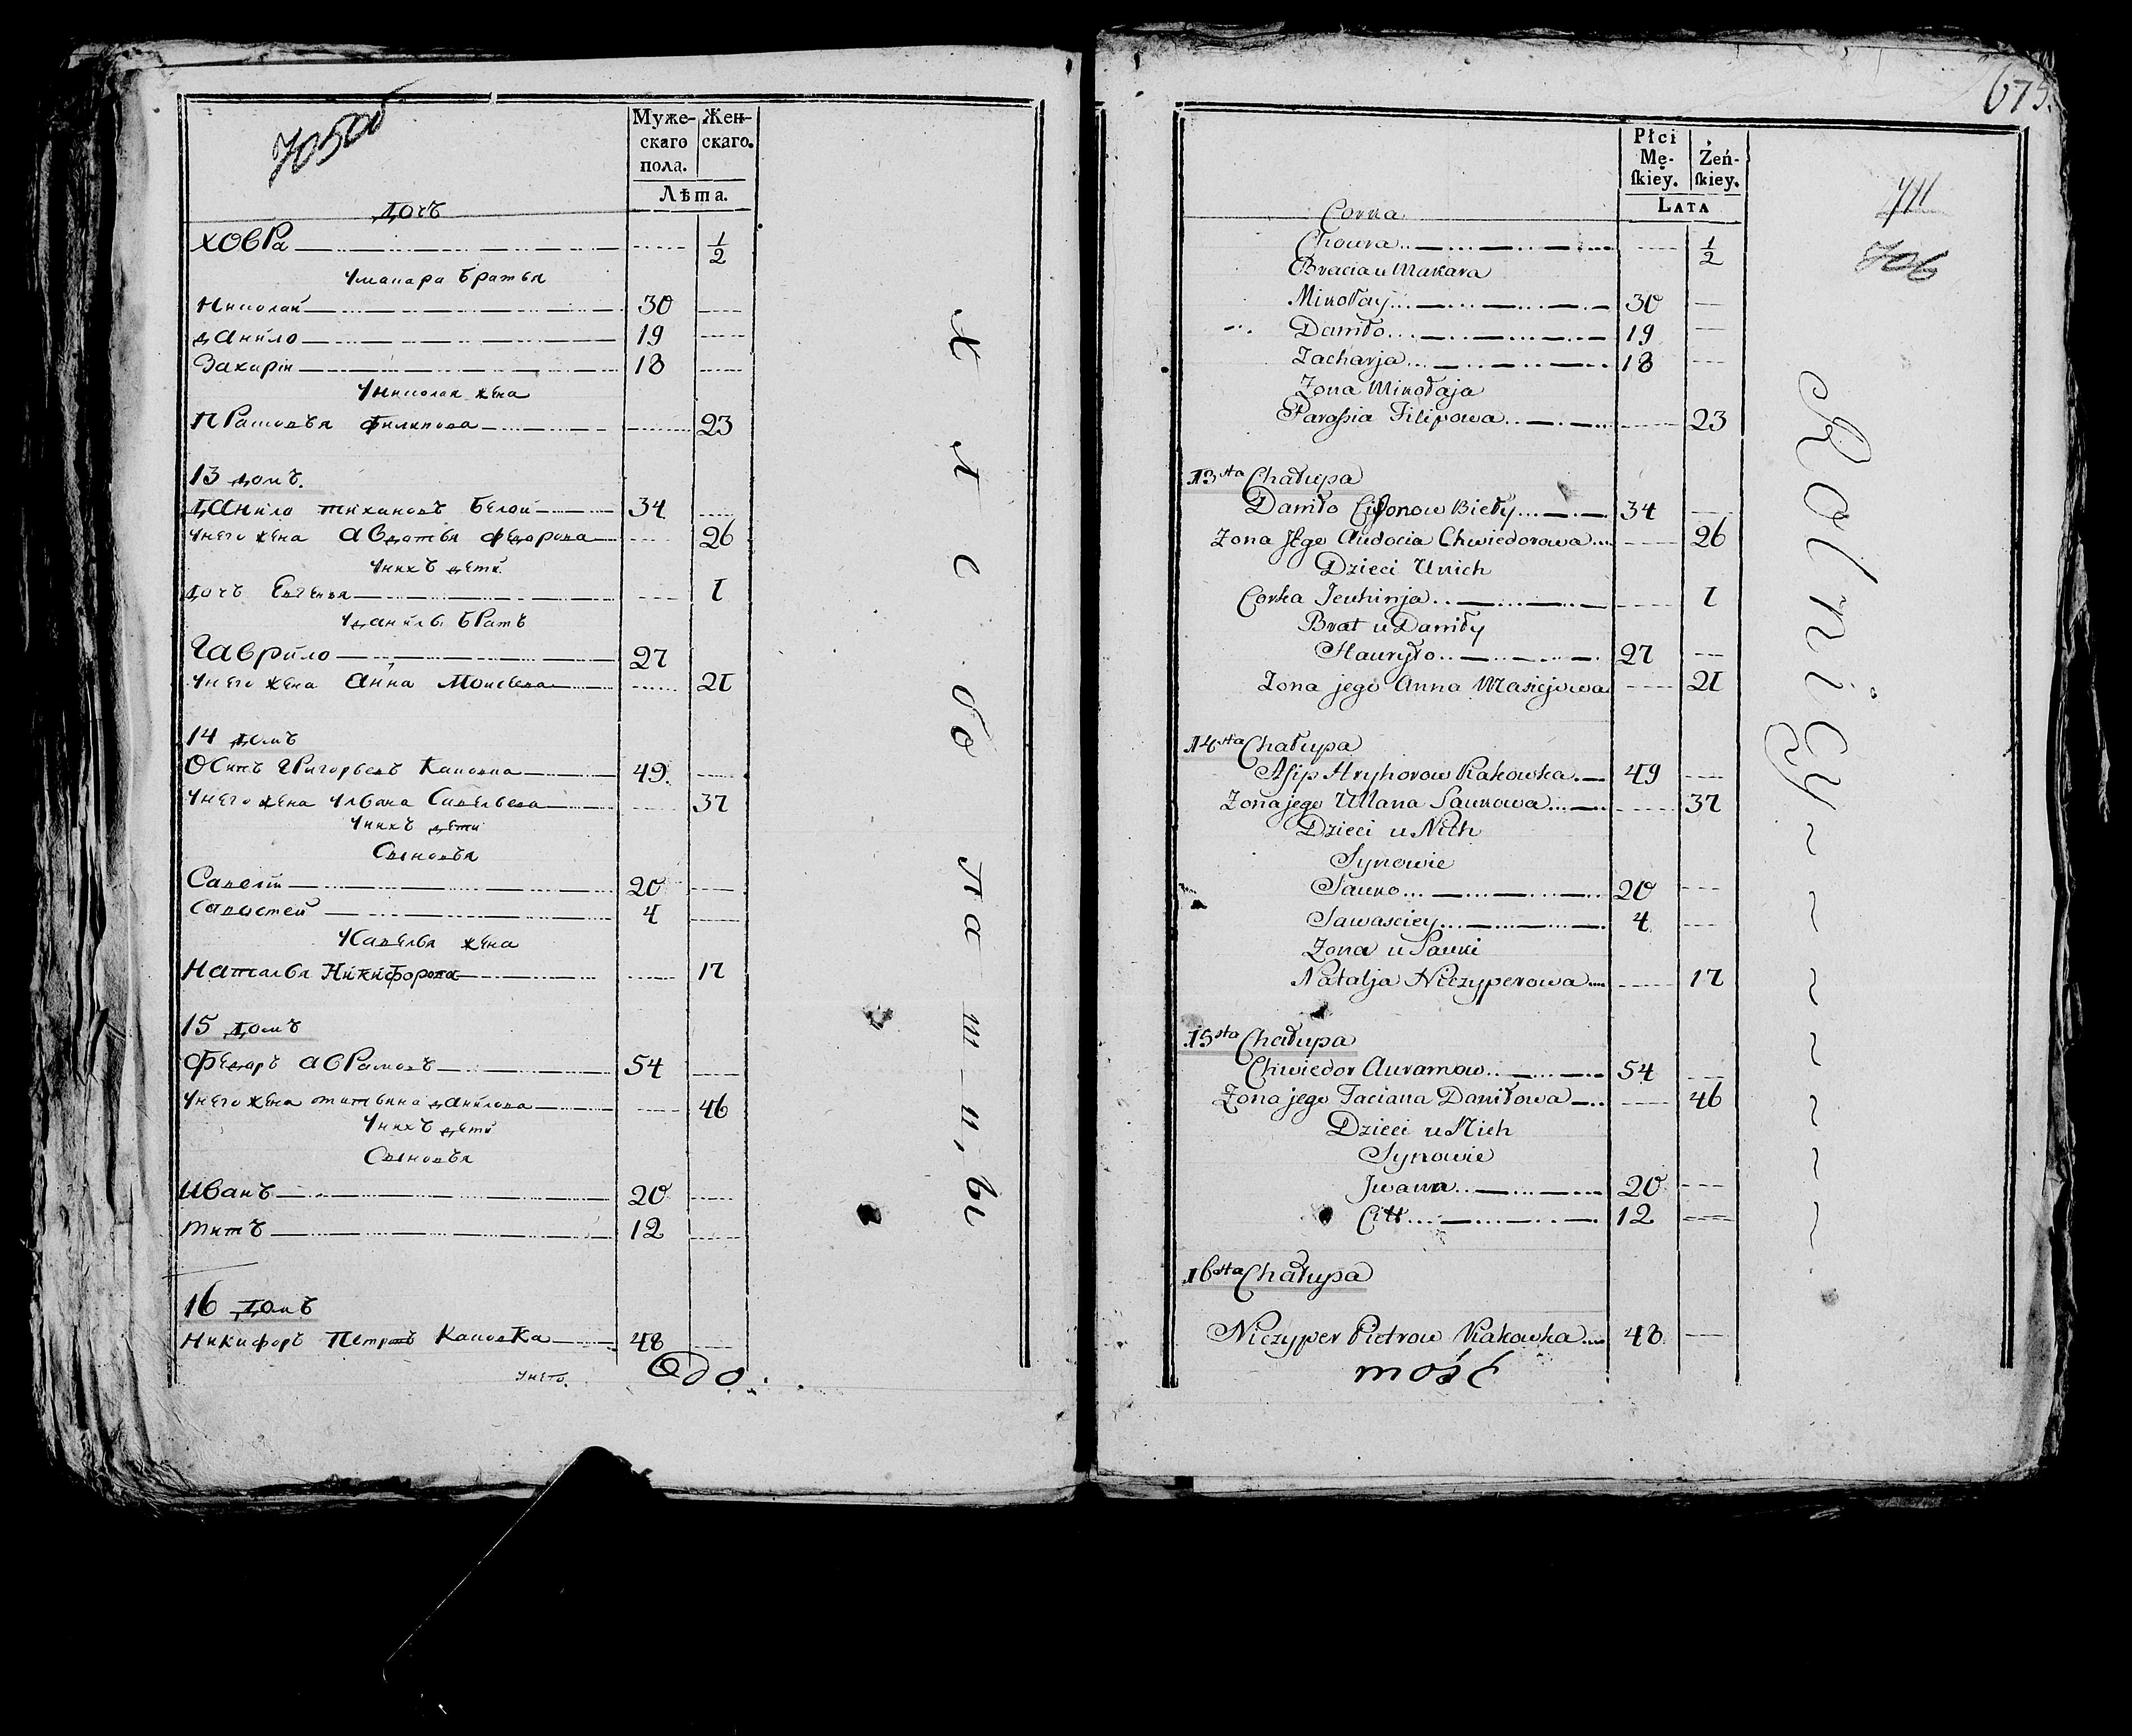 705об
Муже-
скаго
пола.
Жен-
скаго.
Лѣта.
дочъ
ховра 1/2
умакара братья
Николай 30
данило 19
Захарiи 18
Униколая жена
Прасковъя филипова 23
13 домъ.
Данило тихановъ Белой 34
унего жена авдотья федорова 26
унихъ дети
дочъ Евгенья 1
уданилы братъ
Гаврило 27
унего жена анна Моисеева 21
14 домъ
Осипъ Григорьевъ Каковка 49
унего жена ульяна Савельева 37
унихъ дети
Сыновъя
Савелiи 20
Савастей 4
Усавелья жена
Наталья Никифорова 17
15 домъ
федоръ аврамовъ 54
унего жена татьяна данилова 46
унихъ дети
Сыновъя
иванъ 20
титъ 12
16 домъ
никифоръ петровъ каковка 48
унего.
Хлебопашцы
675.
711
706
Płci
Mę-
ſkiey.
Żeń-
ſkiey.
Lata
Corka
Chowra 1/2
Bracia u Makara
Mikołay 30
Daniło 19
Zacharja 18
Zona Mikołaja
Paraſsia Filipowa 23
13sta Chałupa
Daniło Cichonow Bieły 34
Zona Jego Audocia Chwiedorowa 26
Dzieci Unich
Corka Jeuhinja 1
Brat u Daniły
Hauryło 27
Zona jego Anna Masiejowa 21
14sta Chałupa
Asip Hryhorow Kakowka 49
Zona jego Ullana Saukowa 37
Dzieci u Nich
Synowie
Sauko 20
Sawasciey 4
Zona u Sauki
Natalja Niczyperowa 17
15sta Chałupa
Chwiedor Auramow 54
Zona jego Taciana Daniłowa 46
Dzieci u Nich
Synowie
Jwan 20
Citt 12
16sta Chałupa
Niczyper Pietrow Kakowka 48
Rolnicy